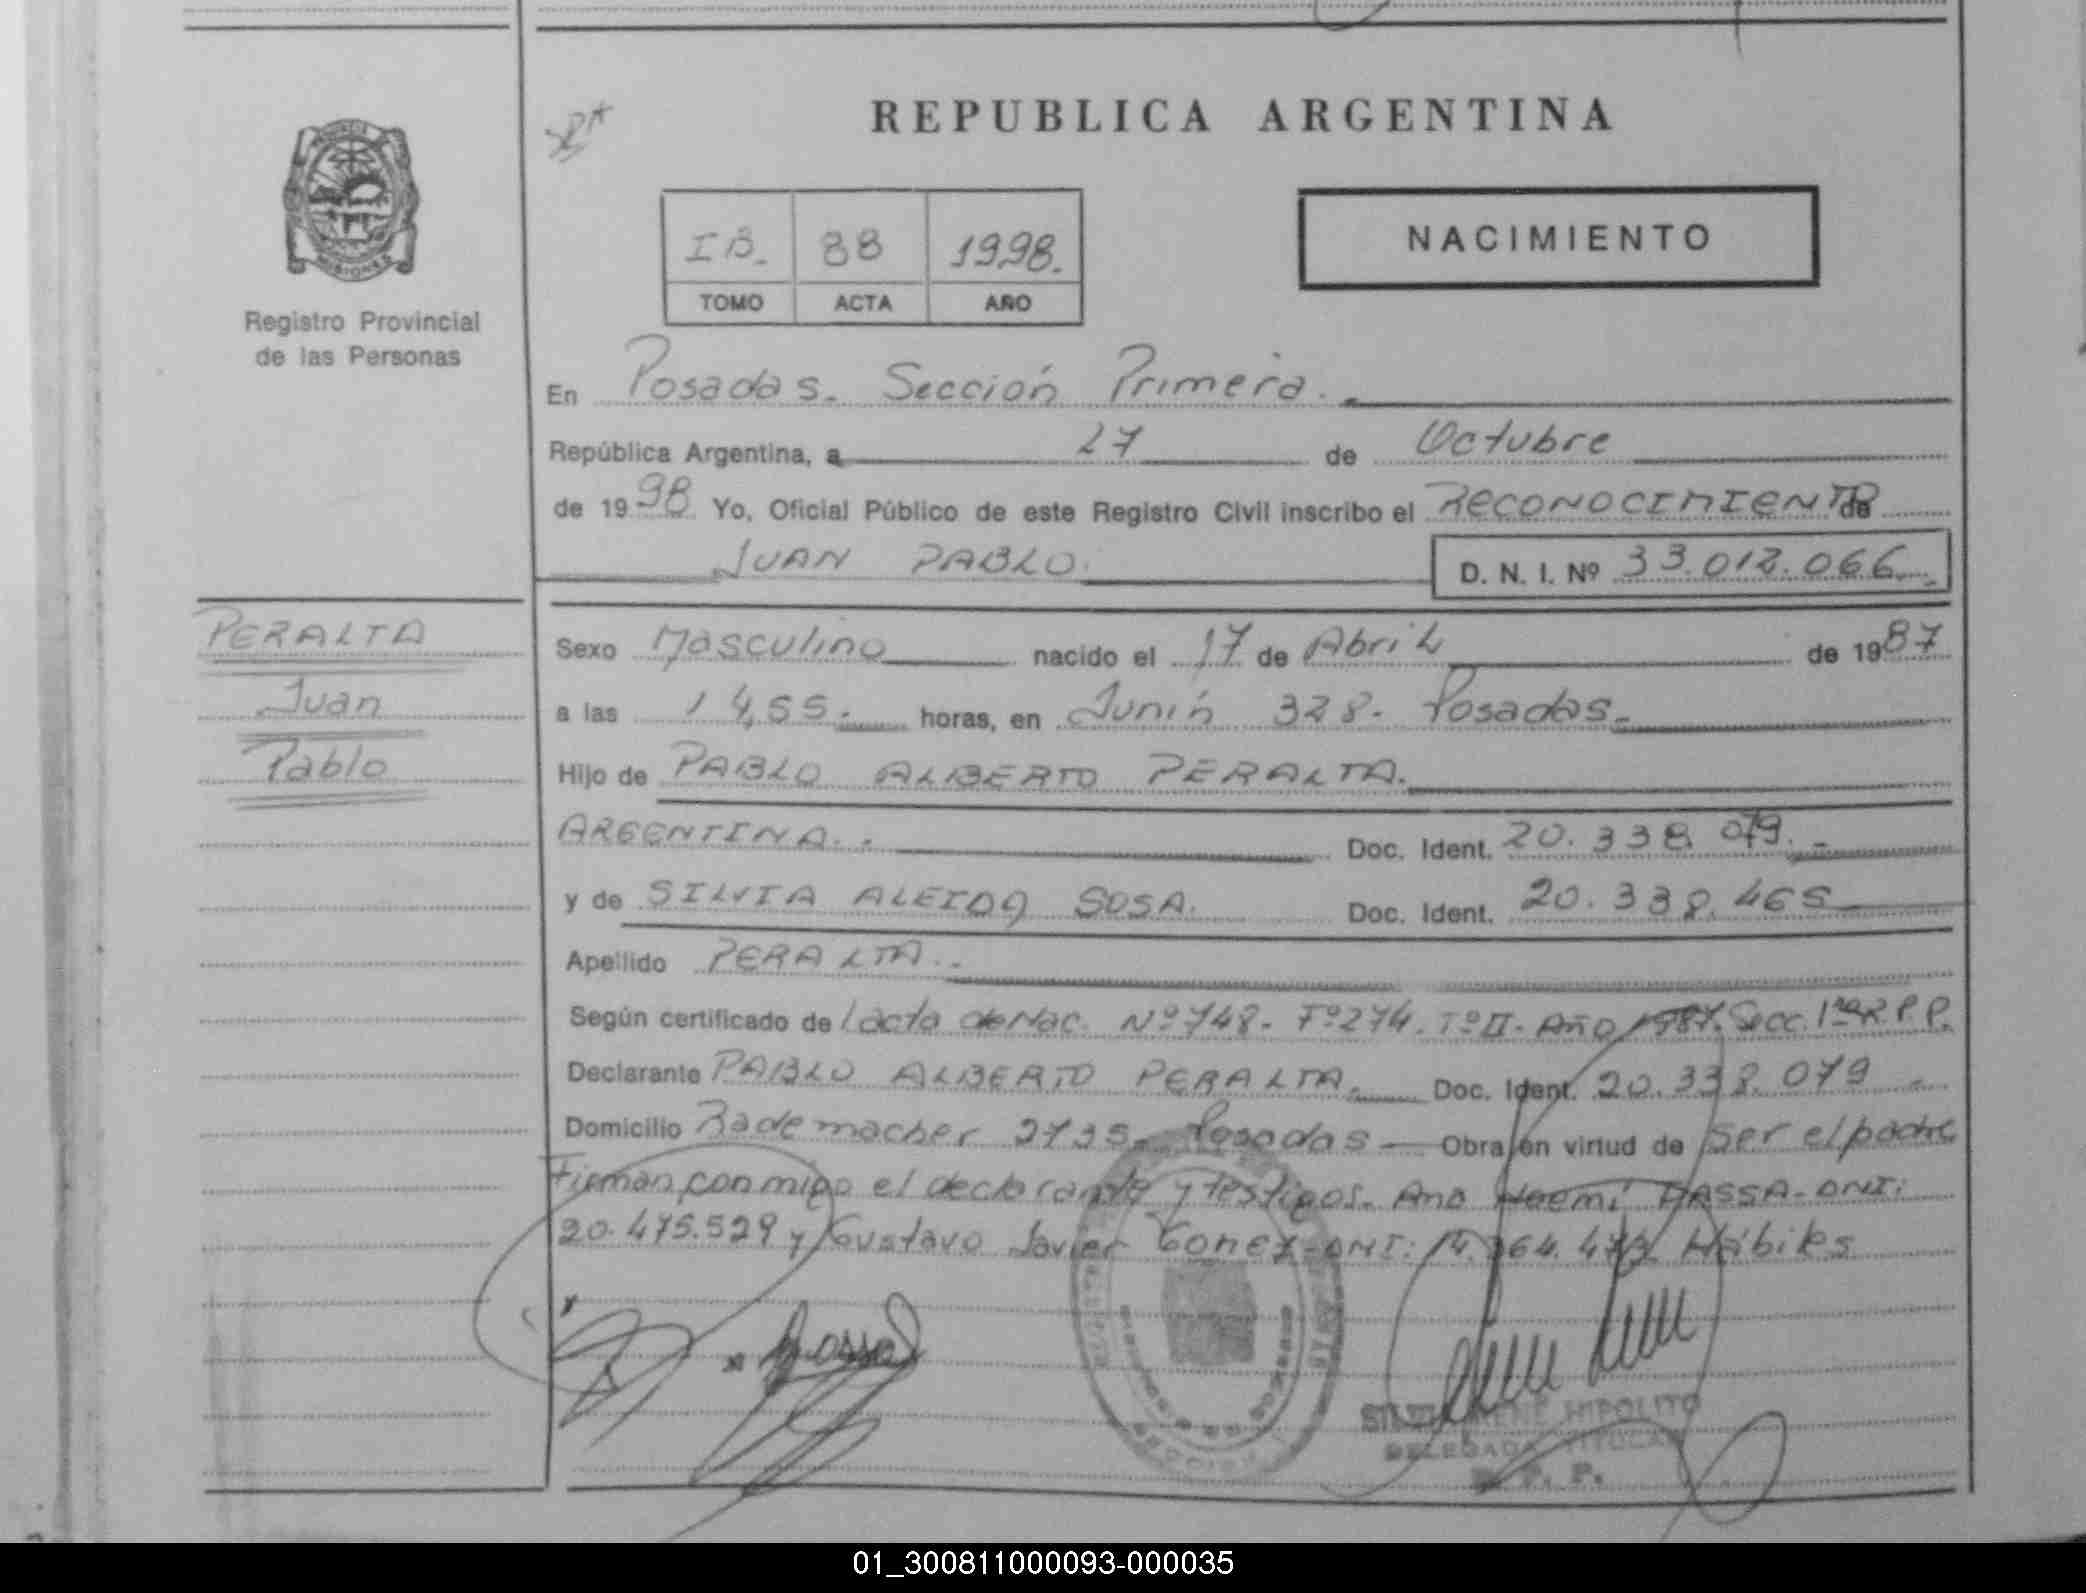 REPUBLICA ARGENTINA
MISIONES
Registro Provincial
de las Personas
IB. 88 1998.
TOMO ACTA AÑO
NACIMIENTO
En Posadas. Sección Primera.
República Argentina, a 27 de Octubre
de 1998 Yo, Oficial Público de este Registro Civil inscribo el RECONOCIMIENTO de
JUAN PABLO. D. N. I. Nº 33.012.066.
PERALTA
Juan
Pablo
Sexo Masculino nacido el 17 de Abril de 1987
a las 14,55. horas, en Junín 328. Posadas.
Hijo de PABLO ALBERTO PERALTA.
ARGENTINA. Doc. Ident. 20.338.079.
y de SILVIA ALEIDA SOSA. Doc. Ident. 20.338.465
Apellido PERALTA.
Según certificado de acta de Nac. Nº 748. Fº 274. Tº II. Año 1987. Secc. 1ª R.P.P.
Declarante PABLO ALBERTO PERALTA. Doc. Ident. 20.338.079
Domicilio Rademacher 2735. Posadas Obra en virtud de ser el padre
Firman conmigo el declarante y testigos. Ana Noemí DNI:
20.475.529 y Gustavo Javier Gomez DNI: Hábiles
IRENE HIPOLITO
DELEGADA TITULAR
R. P. P.
01_300811000093-000035